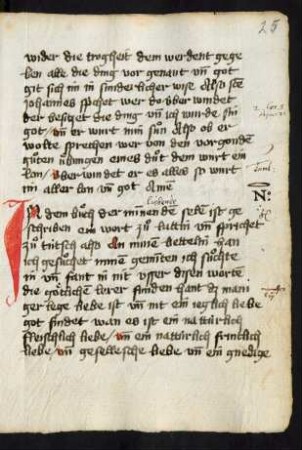 25
wider die trogheit dem werdent gege
ben alle die ding vor genant vn̄ got
git sich im in sunderlicher wise Also sc̄t
Johannes spchet wer do v̈ber windet
der besiczet die ding vn̄ ich wurde sin
got vn̄ er wurt min sun Also ob er
wolte sprechen wer von den vorgonden
guten übungen eines dut dem wurt ein
lon v̈ber windet er es alles so wurt
im aller lon vn̄ got Amē
liebende
In dem buch der minnenden selen ist ge
schriben ein wort zu lattin vn̄ sprichet
zu tütsch also An mime bettelin han
ich gesuchet minē geminten ich suchte
in vn̄ fant in nit vsser disen worten
die götlichen lerer finden hant dz mani
ger lege liebe ist vn̄ nit ein ieglich liebe
got findet wan es ist ein nattürlich
fleischlich liebe vn̄ ein nattürlich früntlich
liebe vn̄ gesellesche liebe vn̄ ein gnedige